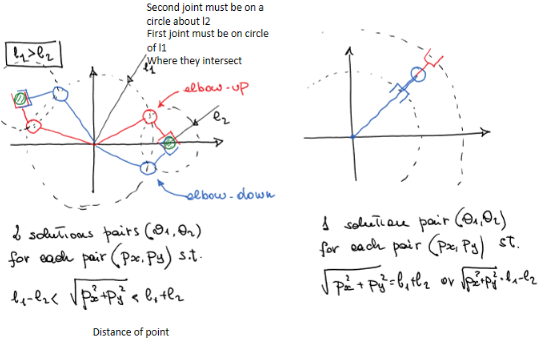 Second joint must be on a
circle about l2
First joint must be on circle
of l1
Where they intersect
ℓ1>ℓ2
ℓ1
elbow-up
ℓ2
elbow-down
2 solutions pairs (θ1,θ2)
for each pair (Px,Py) s.t.
ℓ1-ℓ2 < √(Px²+Py²) < ℓ1+ℓ2
Distance of point
1 solution pair (θ1,θ2)
for each pair (Px,Py) s.t.
√(Px²+Py²)=ℓ1+ℓ2 or √(Px²+Py²)=ℓ1-ℓ2